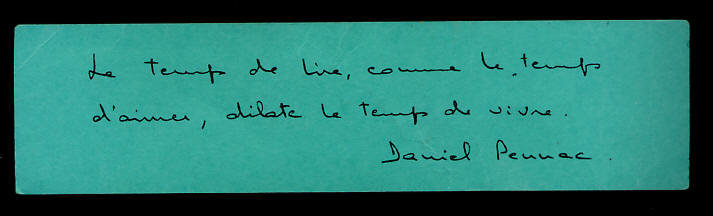 Le temps de lire, comme le temps
d'aimer, dilate le temps de vivre.
Daniel Pennac.